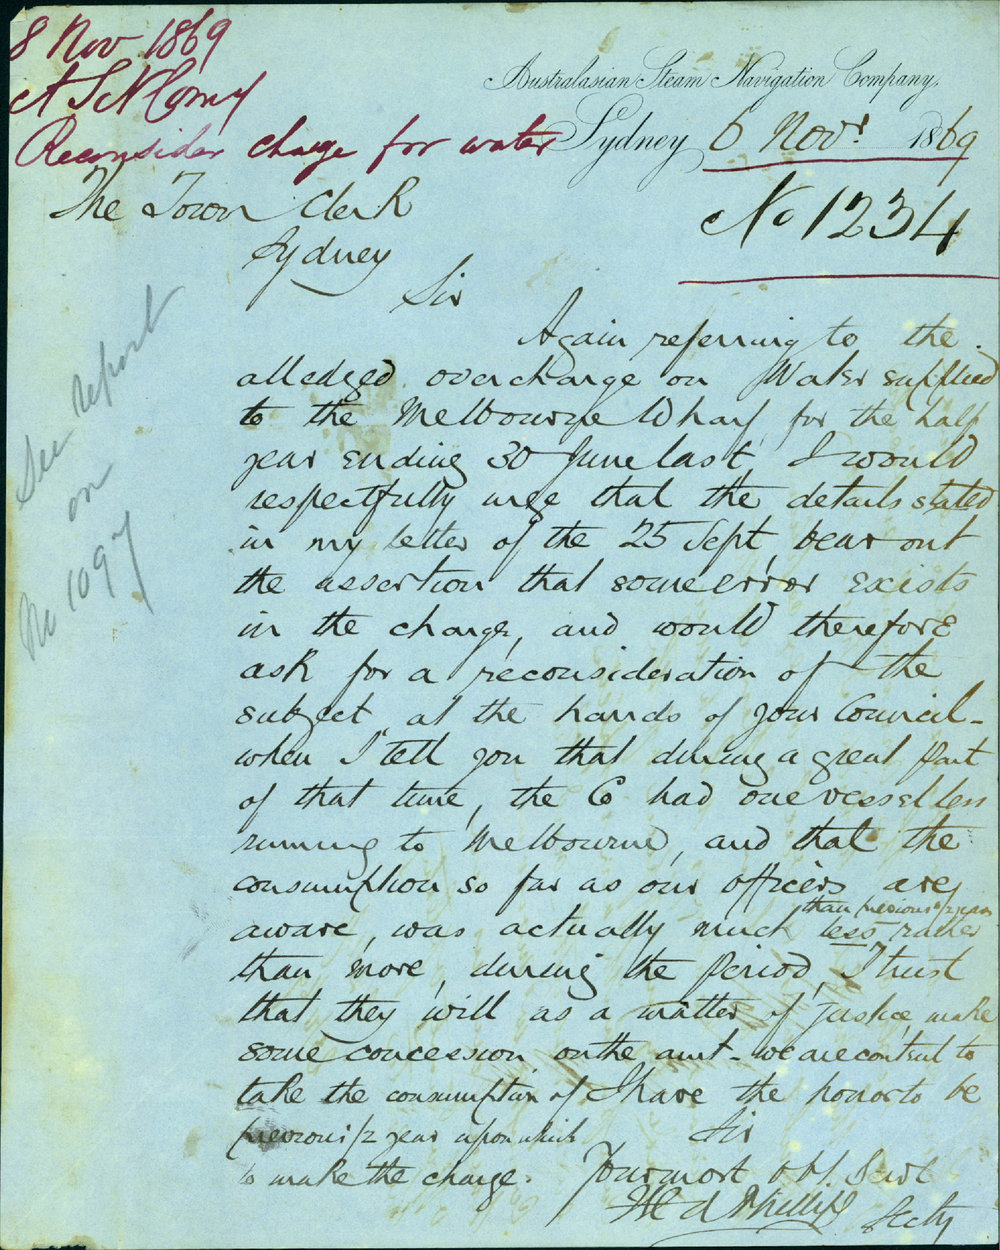 8 Nov 1869
A S N Comy
Reconsider charge for water
Australasian Steam Navigation Company.
Sydney 6 Novr. 1869
No 1234
The Town Clerk
Sydney
Sir
Again referring to the
alledged overcharge on Water supplied
to the Melbourne Wharf, for the half
year ending 30 June last, I would
respectfully urge that the details stated
in my letter of the 25 Sept, bear out
the assertion that some error exists
in the charge, and would therefore
ask for a reconsideration of the
subject at the hands of your Council-
when I tell you that during a great part
of that time, the Co had one vessel less
running to Melbourne, and that the
consumption so far as our officers are
aware, was actually much less rather
than previous 1/2 year
than more, during the period, I trust
that they will as a matter of justice, make
some concession on the amt - we are content to
take the consumption of
previous 1/2 year upon which
to make the charge.
I have the honor to be
Sir
Your most obt. Servt
Phillips Secty
See report
on
No 1097